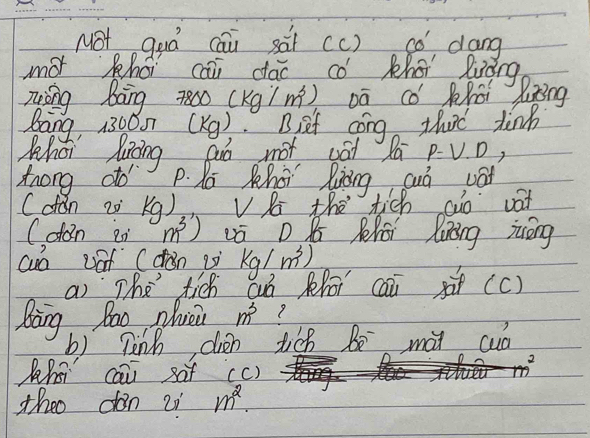 Một quả cầu sắt (C) có dạng
một khối cầu đặc có khối lượng
riêng bằng 7800 (kg/m³) và có khối lượng
bằng 1300π (kg). Biết công thức tính
khối lượng của một vật là P=V.D,
trong đó P là khối lượng của vật
(đơn vị kg) V là thể tích của vật
(đơn vị m³) và D là khối lượng riêng
của vật (đơn vị kg/m³)
a) Thể tích của khối cầu sắt (C)
bằng bao nhiêu m³?
b) Tính diện tích bề mặt của
khối cầu sắt (C) bằng bao nhiêu m²
theo đơn vị m².